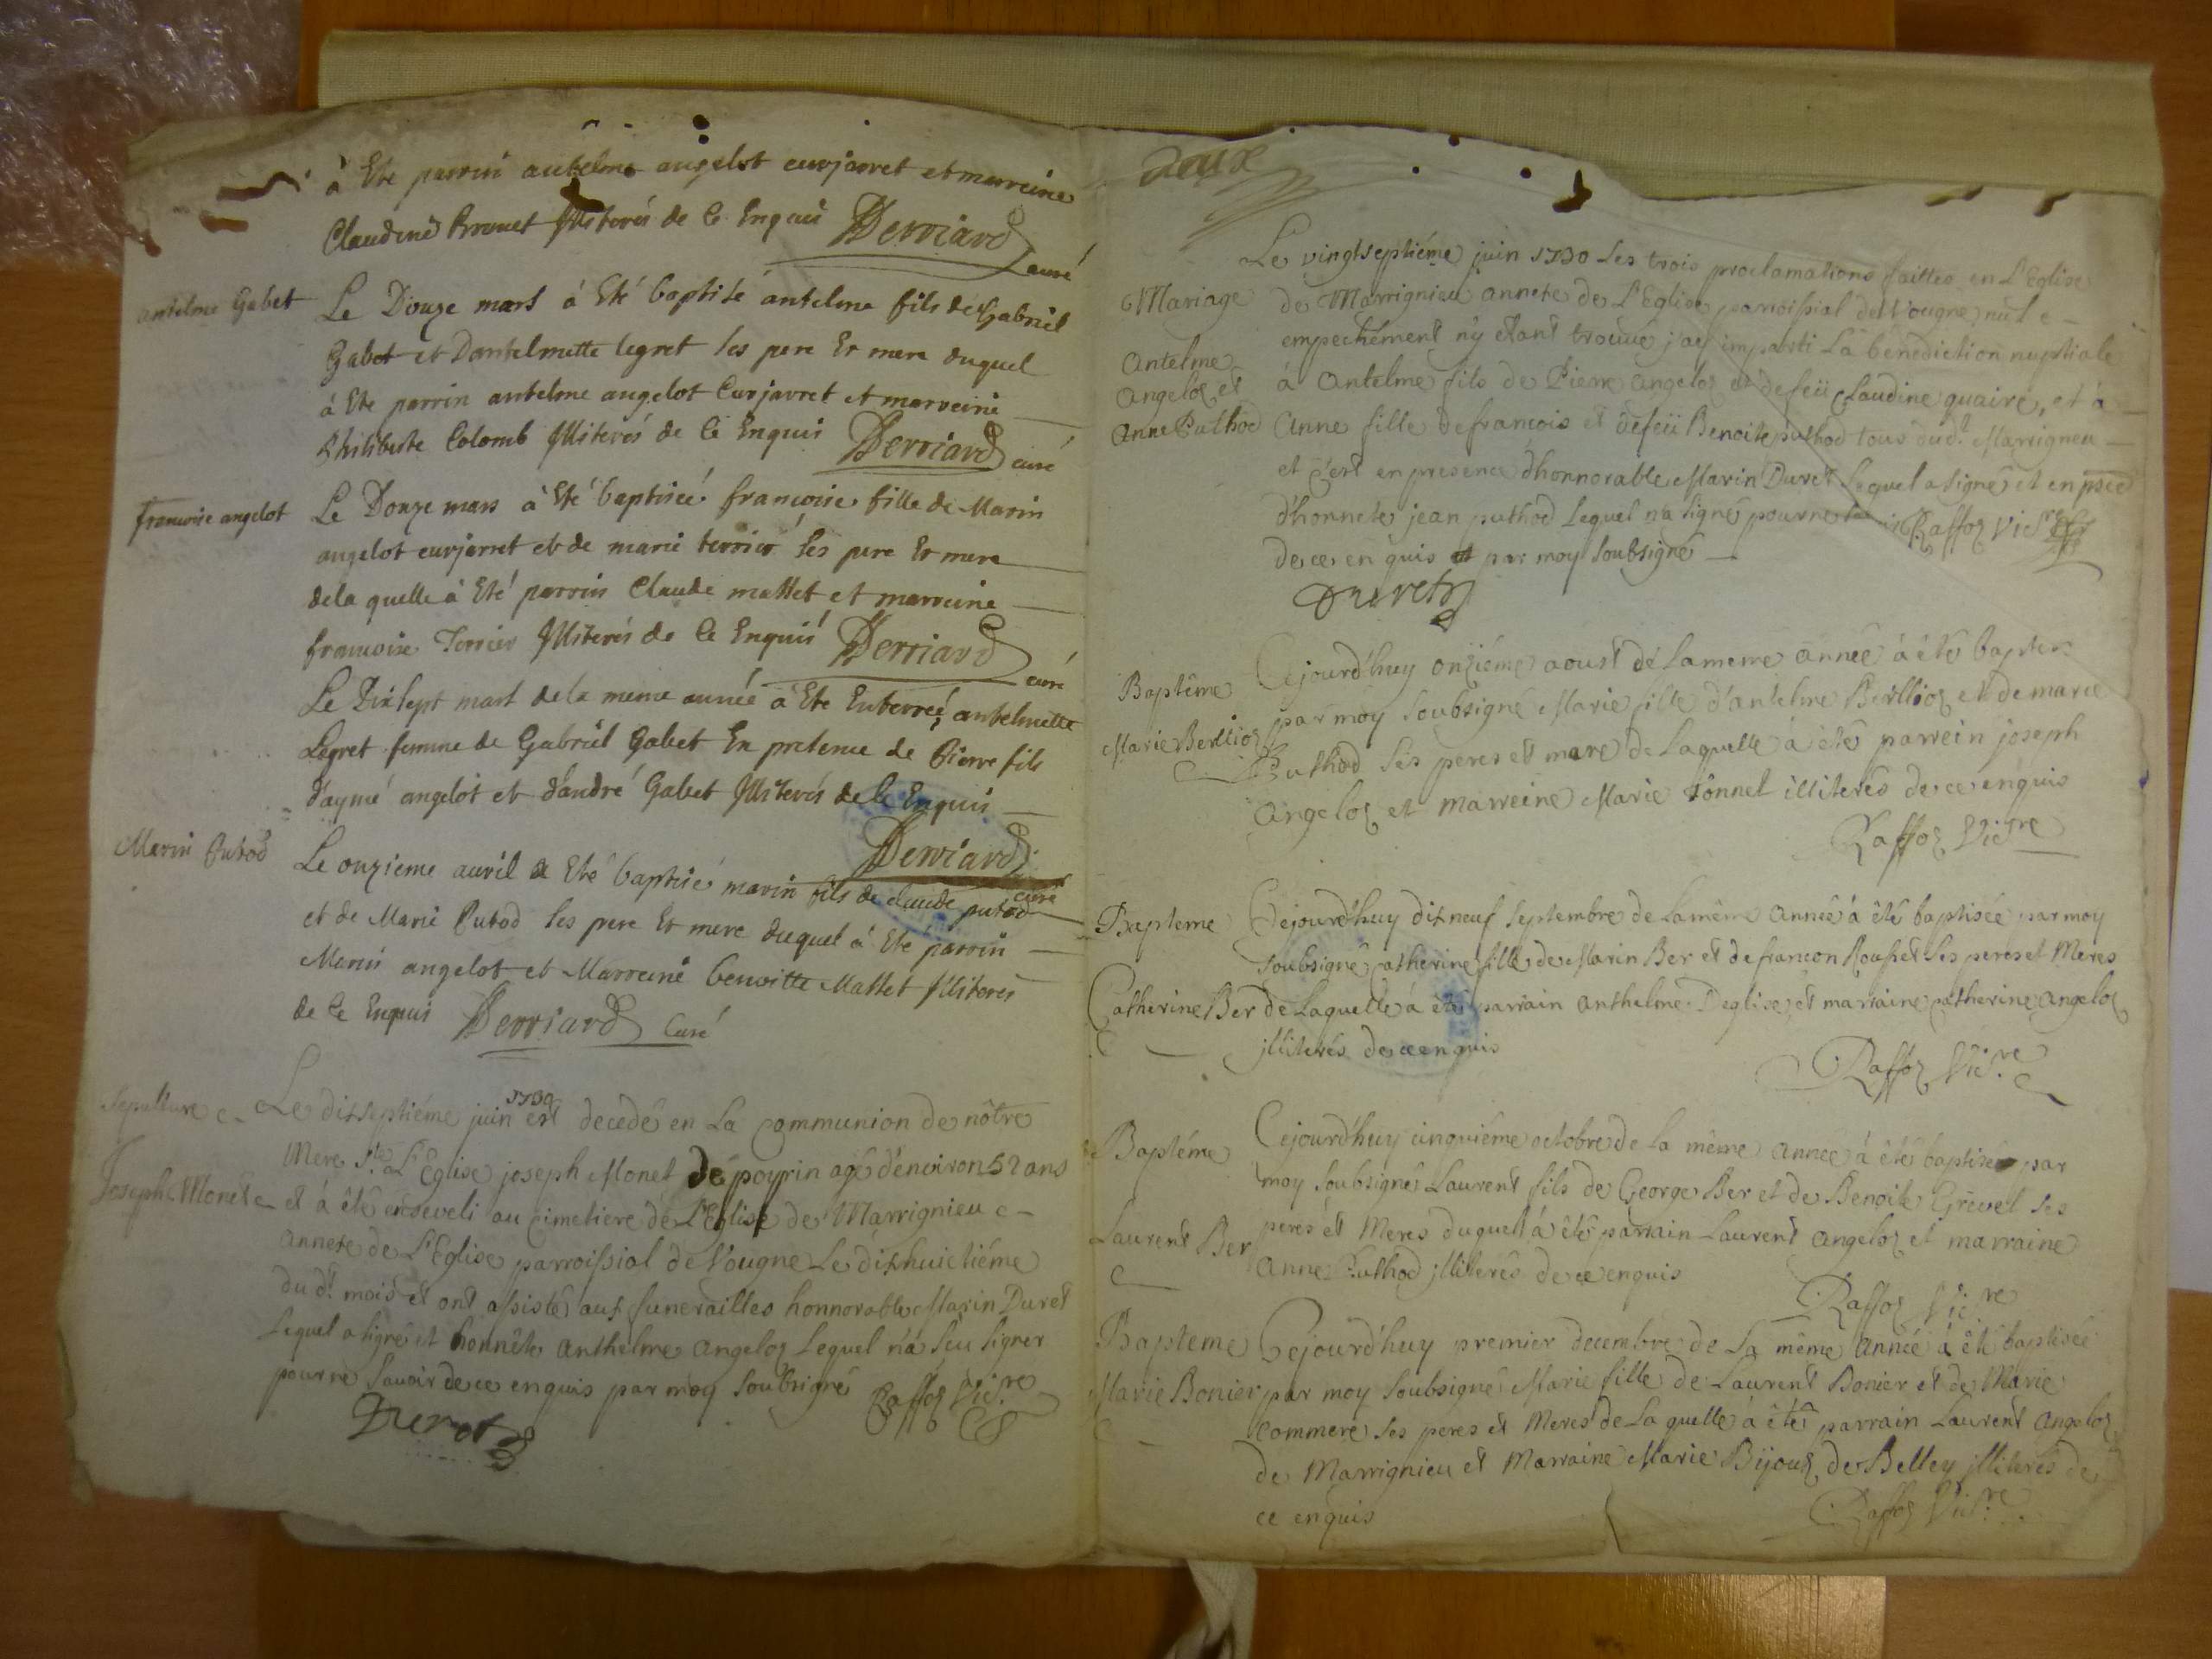 à Ete parrin antelme angelot curjarret et marreine
Claudine Brouet Illiterés de Ce Enquis Derriard
curé
antelme Gabet
Le Douze mars à Eté baptisé antelme fils de Gabriel
Gabet et Dantelmette legret ses pere Et mere duquel
à Ete parrin antelme angelot Curjarret et marreine
Philiberte Colomb Illiterés de Ce Enquis Derriard curé
francoise angelot
Le Douze mars à Eté baptiseé francoise fille de Marin
angelot curjarret et de marie terrier ses pere Et mere
de la quelle à Eté parrin Claude mallet et marreine
francoise Terrier Illiterés de Ce Enquis Derriard
curé
Le Dixsept mars de la meme année à Ete Enterreé antelmette
Legret femme de Gabriel Gabet En presence de Pierre fils
d'aymé angelot et d'andré Gabet Illiterés de Ce Enquis
Derriard
curé
Marin Putod
Le onzieme avril a Eté baptisé marin fils de claude putod
et de Marie Putod ses pere Et mere duquel à Eté parrin
Marin angelot et Marreine benoitte Mallet Illiterés
de Ce Enquis Derriard Curé
Sepulture
Joseph Monet
Le disseptiéme juin 1730 est decedé en La Communion de nôtre
Mere Ste L'Eglise joseph Monet de poyrin agé d'environ 52 ans
et à êté enseveli au Cimetiere de L'Eglise de Marrignieu
annexe de L'Eglise parroissial de Vougne Le dixhuictiéme
du dt mois et ont assistés aux funerailles honnorable Marin Duret
Lequel a signé et honnête Anthelme Angeloz Lequel n'a sçu signer
pour ne Savoir de ce enquis par moy Soubsigné Raffoz Vicre
Duret
deux
Mariage
Antelme
Angeloz et
Anne Puthod
Le vingtseptiéme juin 1730 Les trois proclamations faittes en L'Eglise
de Marrignieu annexe de L'Eglise parroissial de Vougne nul
empechement n'y êtant trouvé j'ay imparti La benediction nuptiale
à Antelme fils de Pierre Angeloz et de feüe Claudine quaire, et à
Anne fille de francois et de feüe Benoite puthod tous dudt Marrigneu
et c'est en presence d'honnorable Marin Duret Lequel a signé et en pnce
d'honnete jean puthod Lequel n'a signé pour ne
de ce enquis et par moy Soubsigné Raffoz Vicre
Duret
Baptême
Marie Berllioz
Cejourd'huy onziéme aoust de La meme année à été baptisée
par moy Soubsigné Marie fille d'antelme Berllioz et de marie
Puthod Ses peres et mere de Laquelle à êté parrein joseph
Angeloz et marreine Marie Tônnet illiterés de ce enquis
Raffoz Vicre
Bapteme
Catherine Ber
Cejourd'huy dixneuf Septembre de La même Année à êté baptisée par moy
Soubsigné Catherine fille de Marin Ber et de francon Rouset Ses peres et Meres
de Laquelle à êté parrain Anthelme Deglise et marraine Catherine Angeloz
jlliterés de ce enquis
Raffoz Vicre
Baptéme
Laurent Ber
Cejourd'huy cinquiéme octobre de La même Année à êté baptisé par
moy Soubsigné Laurent fils de George Ber et de Benoite Grevet Ses
peres et Meres duquel à êté parrain Laurent Angeloz et marraine
Anne Puthod jlliterés de ce enquis
Raffoz Vicre
Bapteme
Marie Bonier
Cejourd'huy premier decembre de La même Année à êté baptisée
par moy Soubsigné Marie fille de Laurent Bonier et de Marie
Commere Ses peres et Meres de La quelle à êté parrain Laurent Angeloz
de Marrignieu et Marraine Marie Bijoux de Belley jlliterés de
ce enquis
Raffoz Vicre